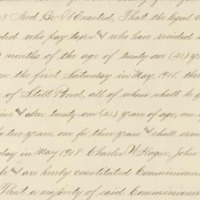 3 And Be It Enacted, That the legal
who pay taxes & who have resided
months of the age of twenty-one (21) years
on the first Saturday in May, 1908, there
of Still Pond, all of whom shall be
and above twenty-one (21) years of age, one
for two years, one for three years & shall serve
day in May 1908 Charles W. Hogan, John
& are hereby constituted Commissioners
That a majority of said Commissioners